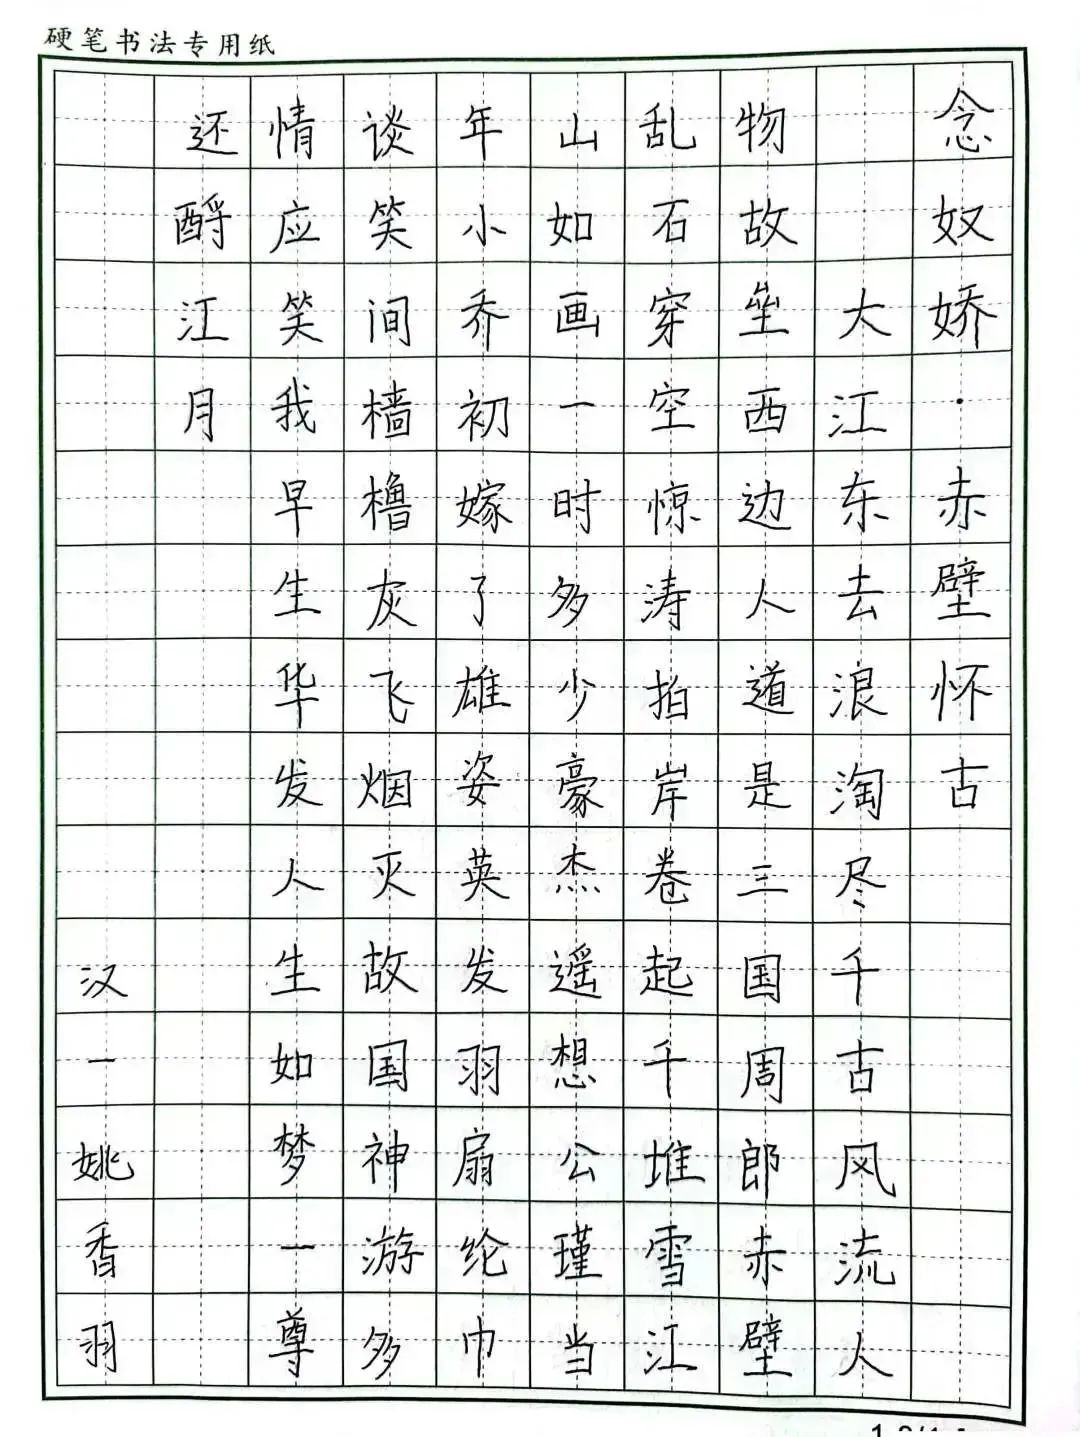 硬笔书法专用纸
念奴娇·赤壁怀古
大江东去浪淘尽千古风流人
物故垒西边人道是三国周郎赤壁
乱石穿空惊涛拍岸卷起千堆雪江
山如画一时多少豪杰遥想公瑾当
年小乔初嫁了雄姿英发羽扇纶巾
谈笑间樯橹灰飞烟灭故国神游多
情应笑我早生华发人生如梦一尊
还酹江月
汉一姚香羽